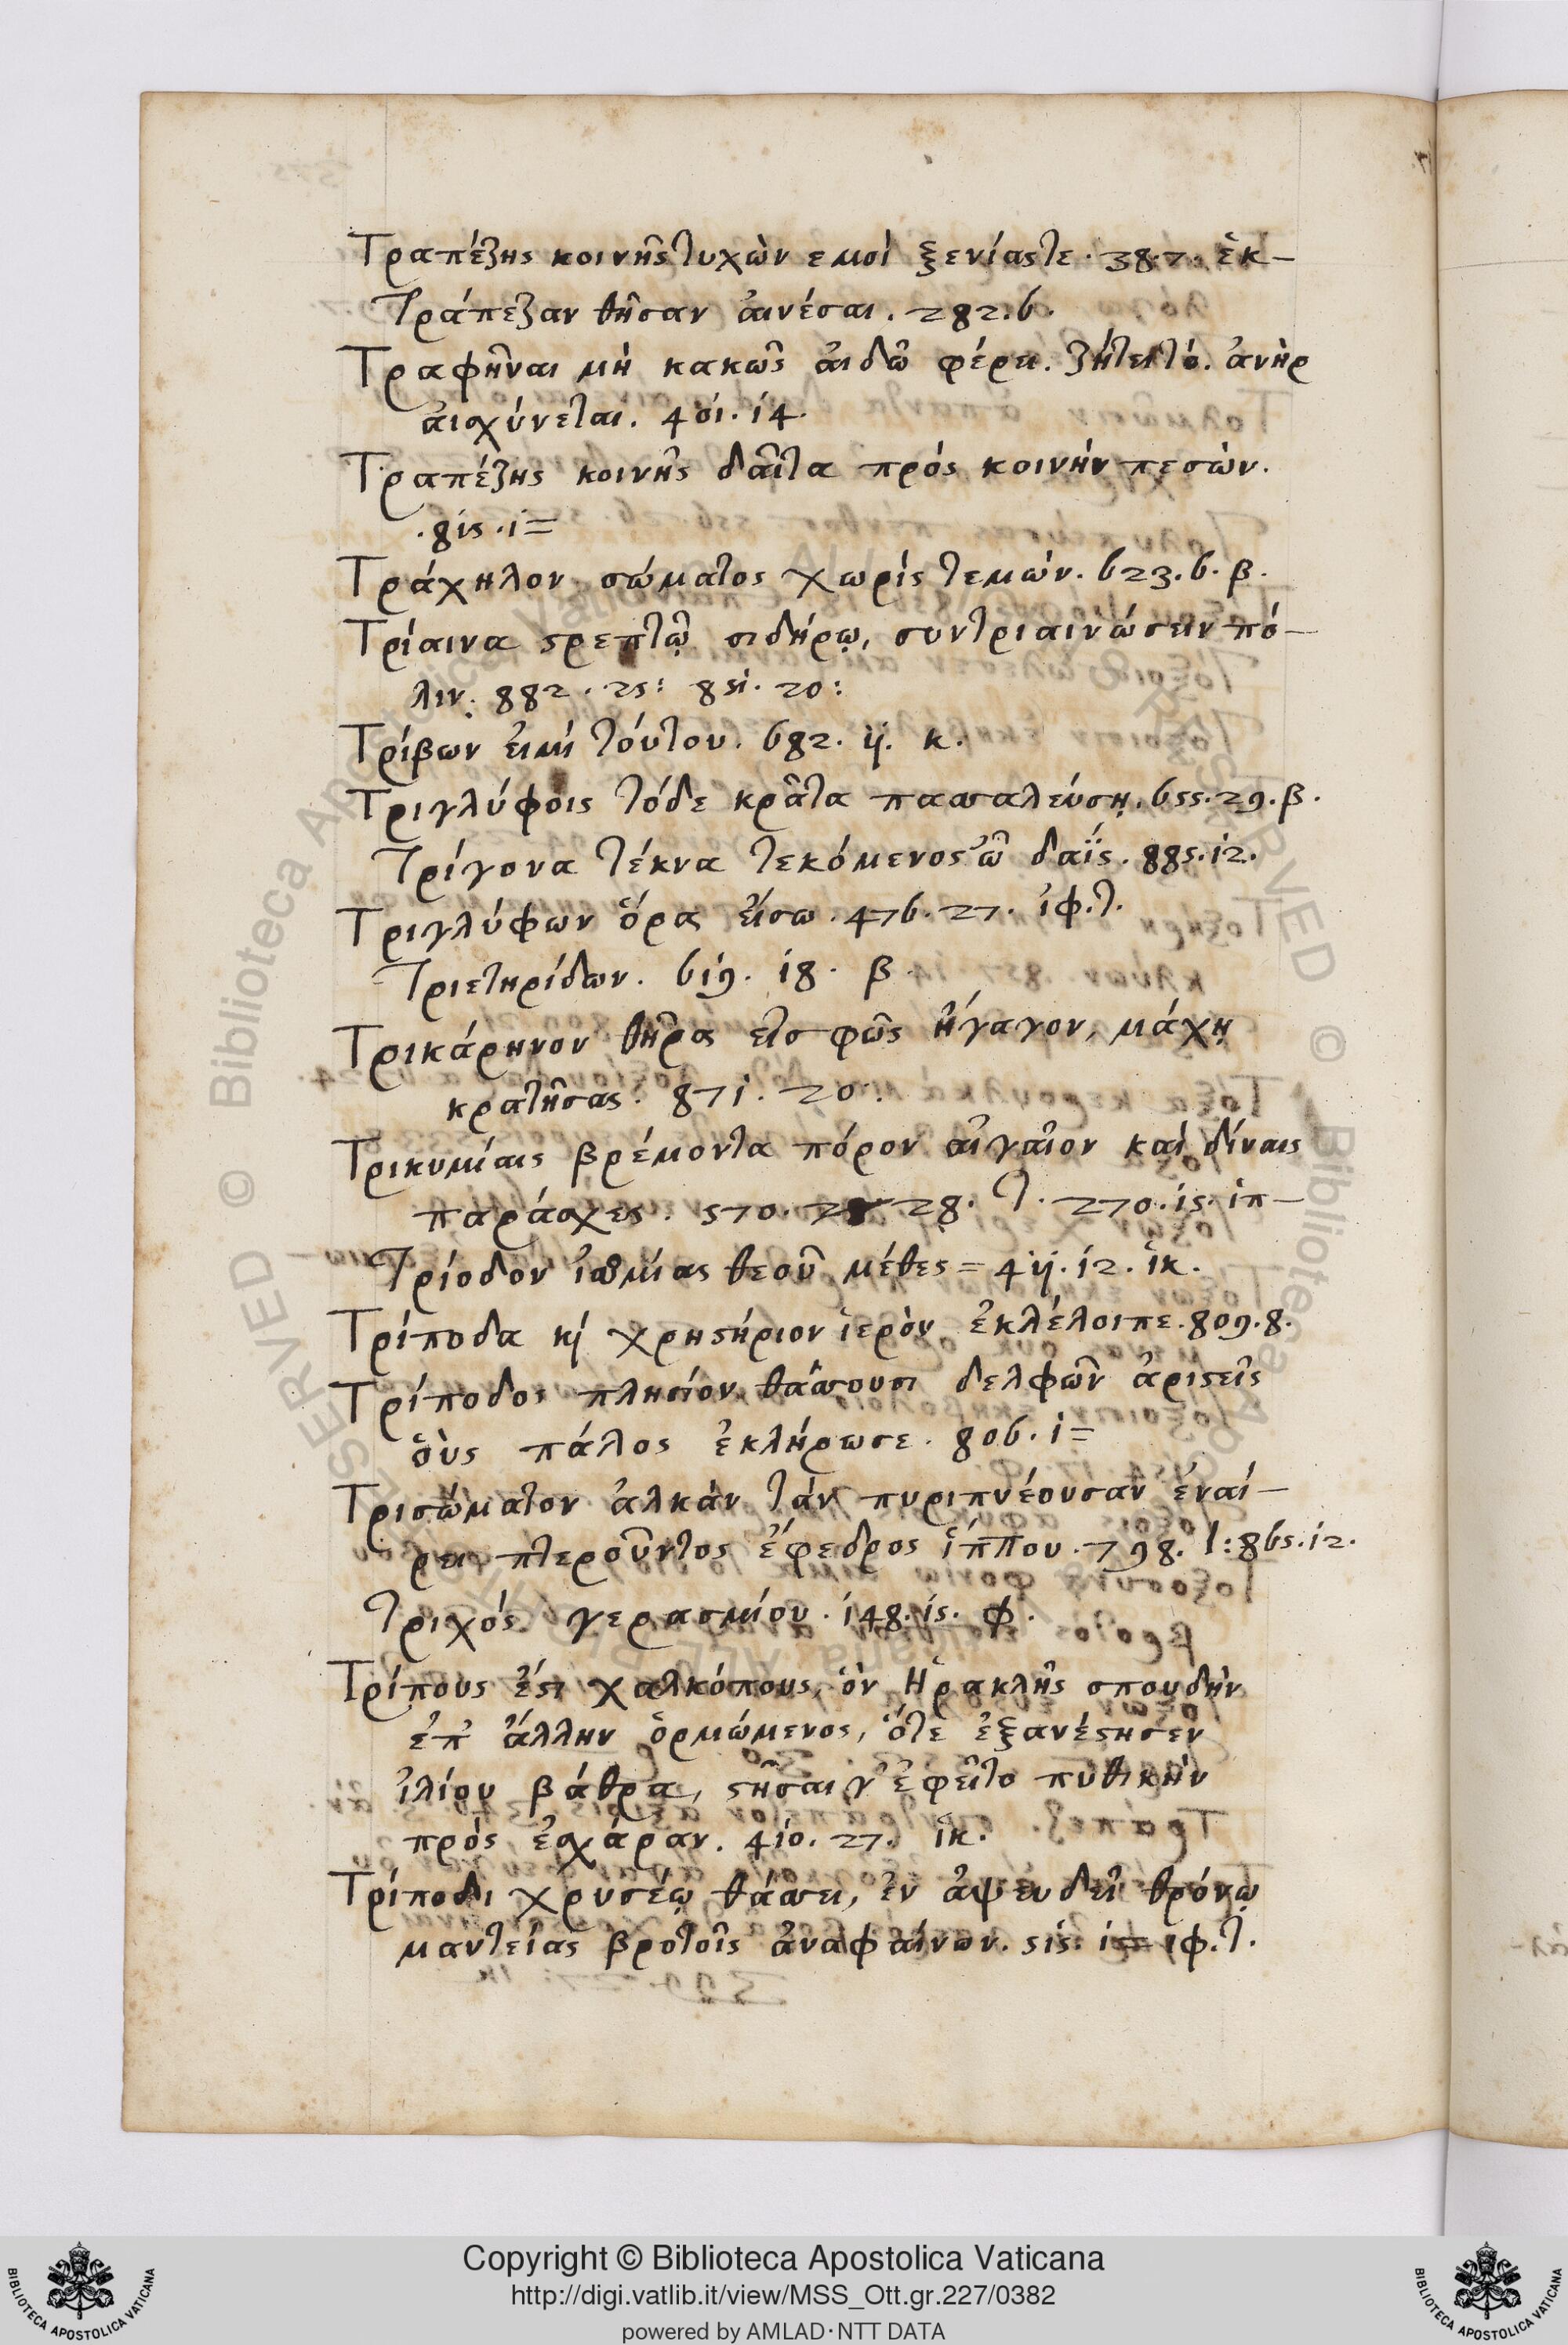 Τραπέζης κοινῆς τυχὼν εμοὶ ξενίαςτε. 38.7. ἑκ–
Τράπεζαν θῆσαν ἀινέσαι. 282.6.
Τραφῆναι μὴ κακῶς ἀιδῶ φέρει. ζήτει τό. ἀνὴρ
ἀισχύνεται. 401.14.
Τραπέζης κοινῆς δᾶιτα πρός κοινήν πεσὼν.
.815.1=
Τράχηλον σώματος χωρίς τεμὼν. 623.6.β.
Τρίαινα ϛρεπτῷ σιδήρῳ, συντριαινώσειν πό–
λιν: 882.25: 851.20:
Τρίβων ἐιμί τόυτου. 682.11. κ.
Τριγλύφοις τόδε κρᾶτα πασσαλεύσῃ. 655.29.β.
Τρίγονα τέκνα τεκόμενος ὦ δαΐς. 885.12.
Τριγλύφων ὅρα ἔισω. 476.27. ἰφ.τ.
Τριετηρίδων. 619. 18. β.
Τρικάρηνον θῆρα εἰσ φῶς ἤγαγον, μάχῃ
κρατῆσας. 871. 20.
Τρικυμίαις βρέμοντα πόρον ἀιγαῖον καὶ δίναις
παράσχες. 570. 28. τ. 270.15. ἱπ–
Τρίοδον ἰσθμίας θεοῦ μέθες = 411.12. ἱκ.
Τρίποδα κϳ χρηϛήριον ἱερὸν ἐκλέλοιπε. 809.8.
Τρίποδος πλησίον θάσσουσι δελφῶν ἀριϛεῖς
ὅυς πάλος ἐκλήρωσε. 806.1=
Τρισώματον ἀλκὰν τάν πυριπνέουσαν ἐναί–
ρει πτεροῦντος ἔφεδρος ἵππου. 798. τ: 865.12.
Τριχός γερασμίου. 148.15. φ.
Τρίπους ἔϛι χαλκόπους, ὁν Ἡρακλῆς σπουδὴν
ἐπ' ἄλλην ὁρμώμενος, ὅτε ἐξανέϛησεν
ἰλίου βάθρα, ϛῆσαι γ' ἐφεῖτο πυθικὴν
πρὸς ἐσχάραν. 410. 27. ἱκ.
Τρίποδι χρυσέῳ θάσσει, ἐν ἀψευδεῖ θρόνῳ
μαντείας βροτοῖς ἀναφαίνων. 515. 1= ιφ.τ.
Copyright © Biblioteca Apostolica Vaticana
http://digi.vatlib.it/view/MSS_Ott.gr.227/0382
powered by AMLAD·NTT DATA